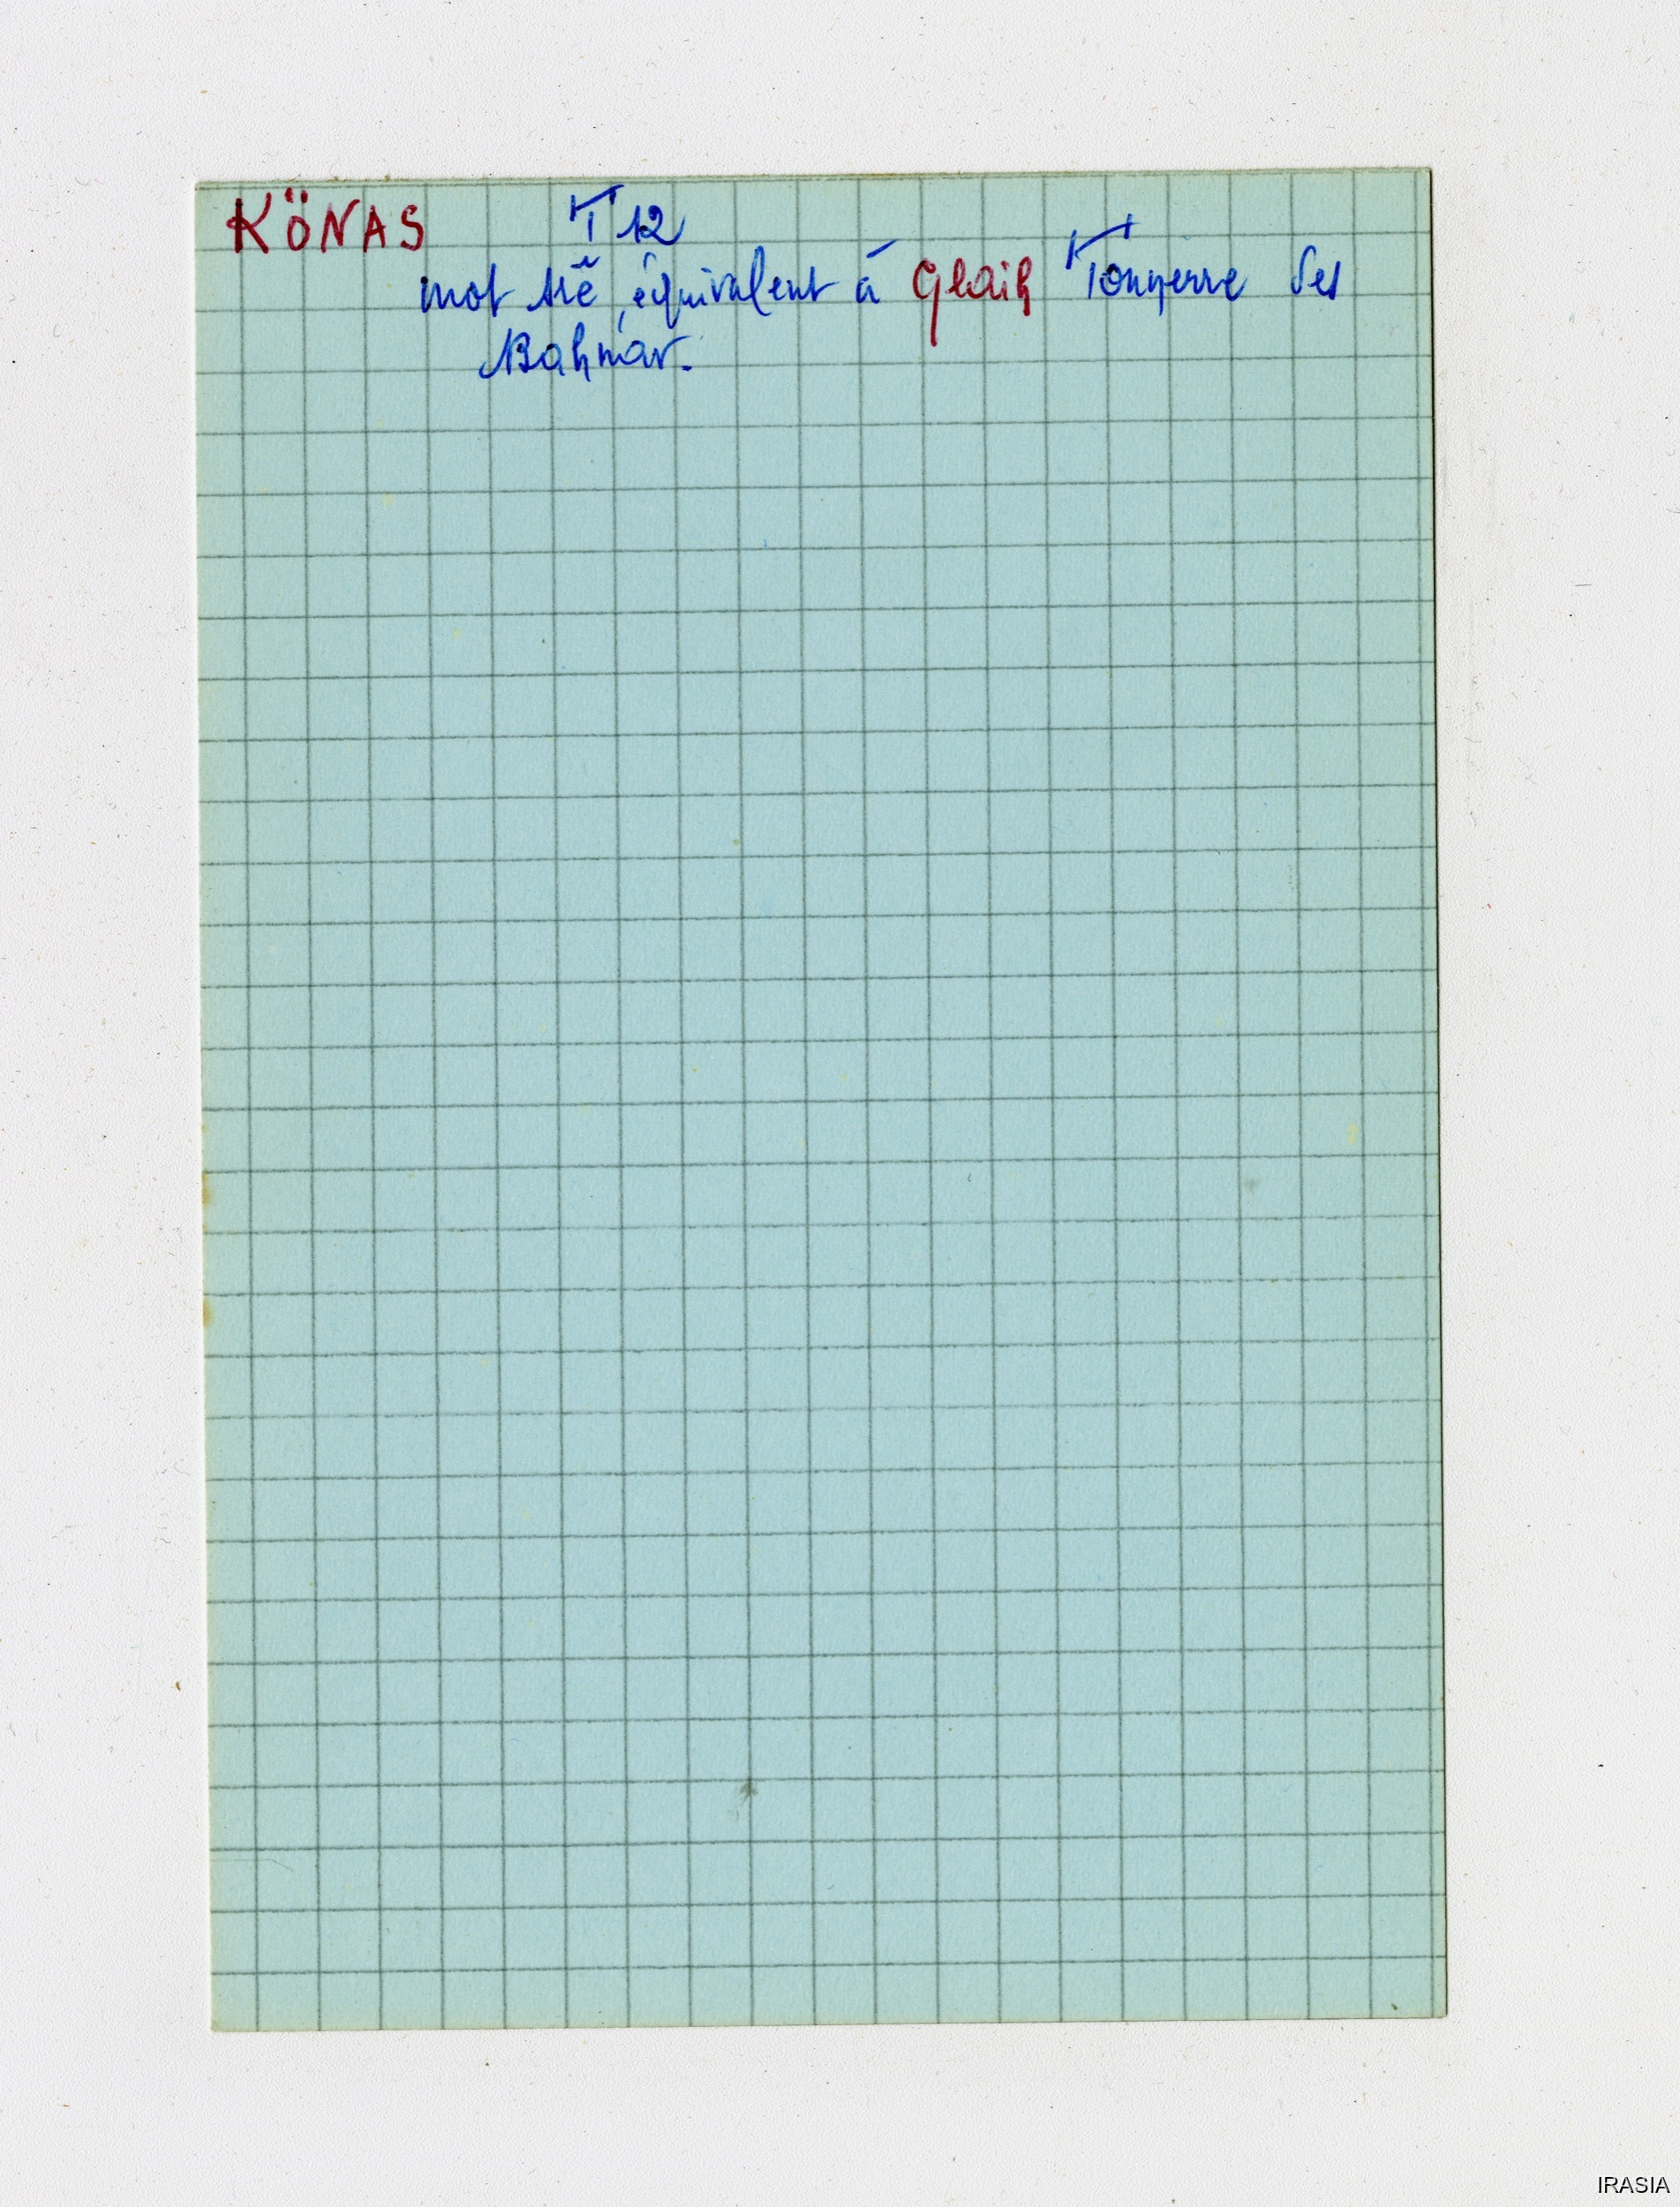 KÖNAS T12
mot srê, équivalent à Glaih Tonnerre des
Bahnar.
IRASIA